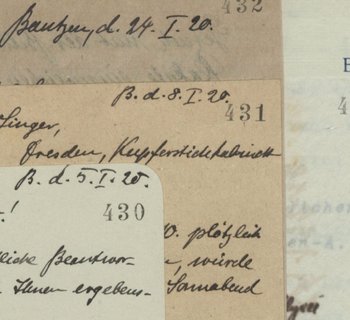 432
Bautzen, d. 24. I. 20.
B. d. 8. I. 20.
431
Singer,
Dresden, Kupferstichkabinett
B. d. 5. I. 20.
430
!
0. plötzlich
liche Beantwor-
, würde
Ihnen ergebens-
Sonnabend
E
4